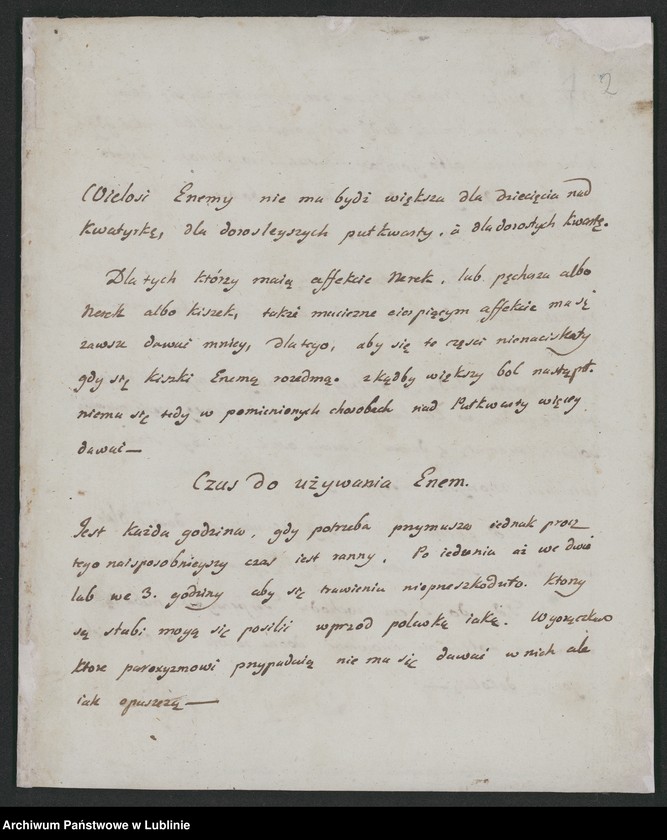 2
Wielosi Enemy nie ma bydź większa dla dziecięcia nad
kwatyrkę, dla dorosleyszych pułkwarty, a dla dorosłych kwartę.
Dla tych którzy maią affekcie Nerek, lub pęcherza albo
Nerek albo kiszek, także maciczne cierpiącym affekcie ma się
zawsze dawać mniey, dla tego, aby się te częsci nienaciskały
gdy się kiszki Enemą rozedmą. zkądby większy bol nastąpił.
niema się tedy w pomienionych chorobach nad Pułkwarty więcey
dawać —
Czas do używania Enem.
Jest każda godzina, gdy potrzeba przymusza iednak procz
tego naisposobnieyszy czas iest ranny. Po iedzenia aż we dwie
lub we 3. godziny aby się trawieniu nieprzeszkodziło. Ktorzy
są słabi mogą się posilić wprzod polewką iaką. W gorączkach
ktore paroxyzmowi przypadaią nie ma się dawać w nich ale
iak opuszczą —
Archiwum Państwowe w Lublinie